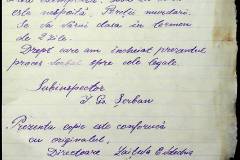 este nespoită. Pereții murdari.
Se va vărui clasa în termen
de 2 zile.
Drept care am încheiat prezentul
proces verbal spre cele legale.
Subinspector
I. Gh. Șerban
Prezenta copie este conformă
cu originalul.
Directoare